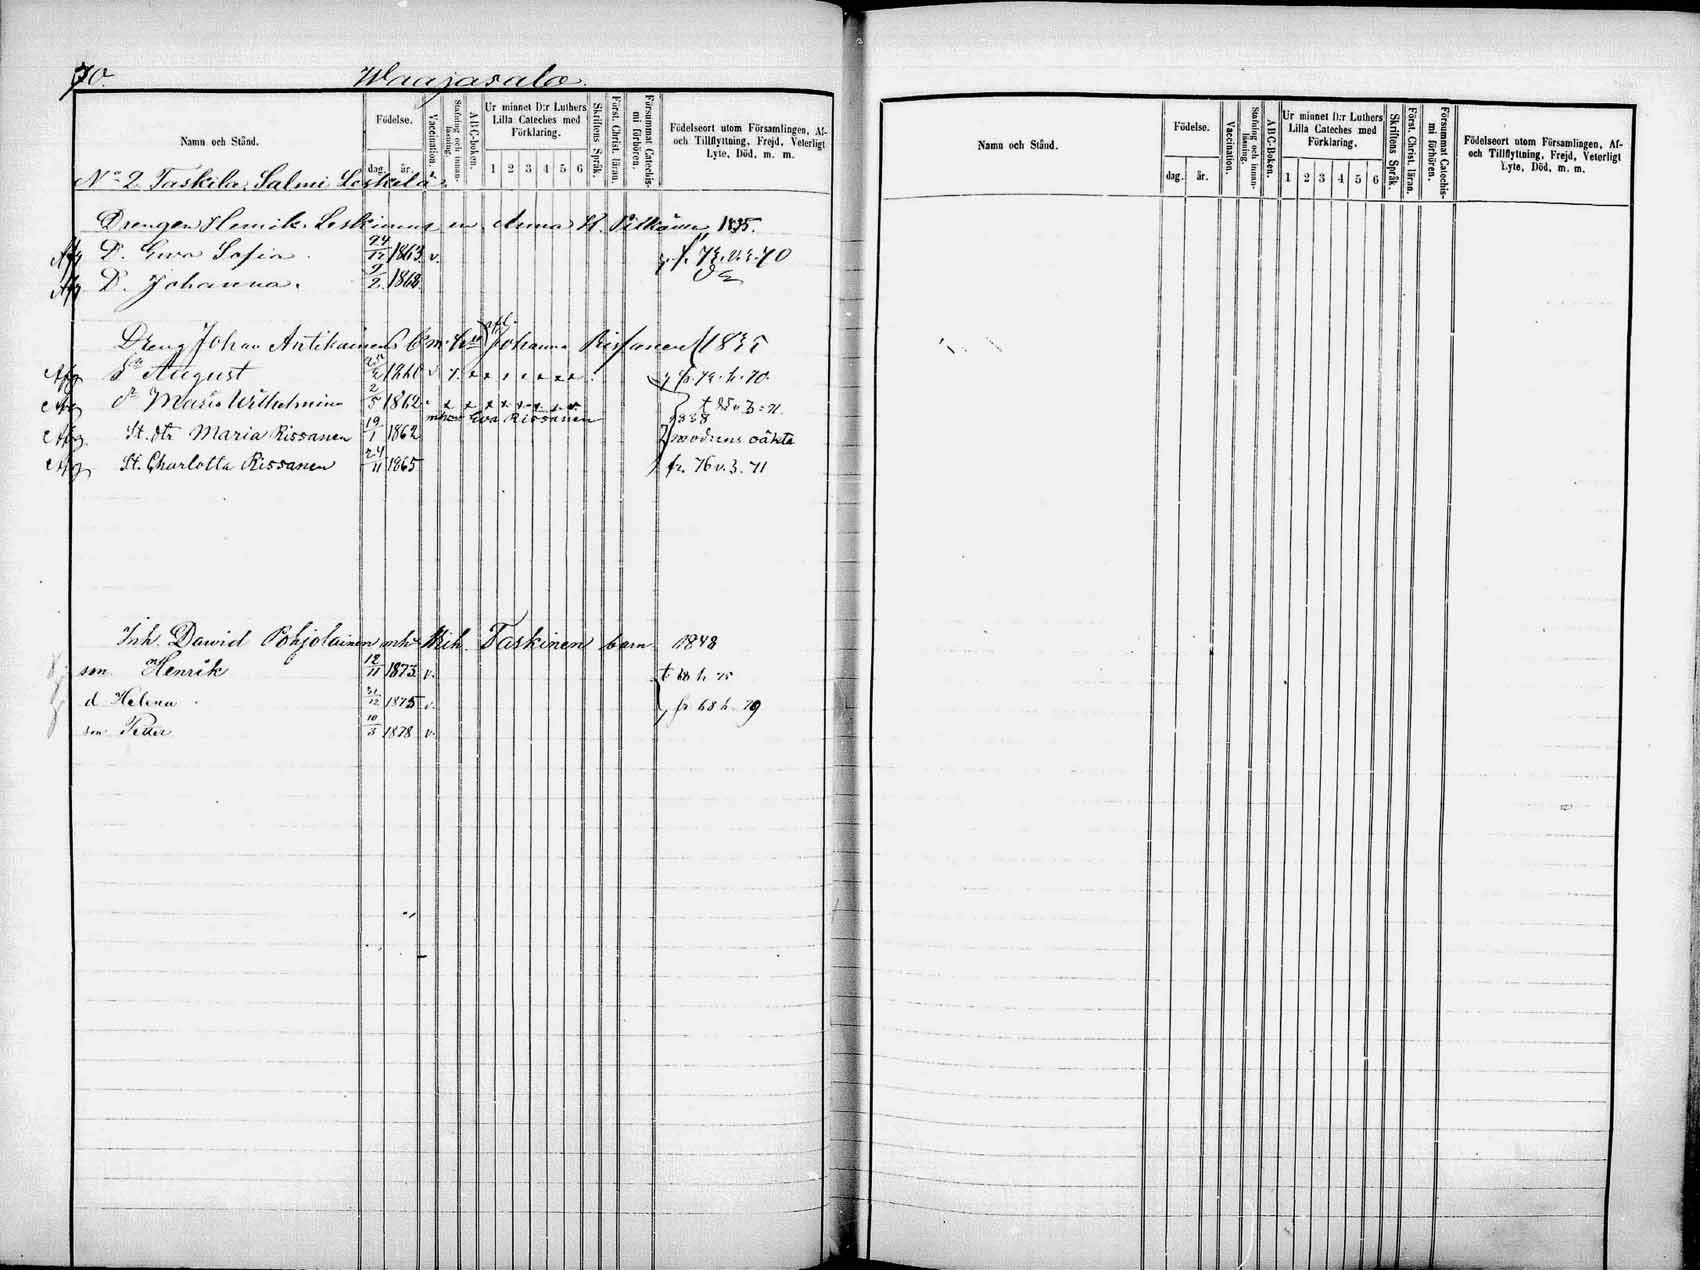 70. Waajasalo.
Namn och Stånd. Födelse. dag. år. Vaccination. Stafning och innanläsning. A B C-boken. Ur minnet D:r Luthers Lilla Cateches med Förklaring. 1 2 3 4 5 6 Skriftens Språk. Först. Christ. läran. Försummat Catechismi förhören. Födelseort utom Församlingen, Af- och Tillflyttning, Frejd, Veterligt Lyte, Död, m. m.
No 2 Taskila, Salmi Leskelä
Drengen Henrik Leskinens m. Anna K. Pitkänen 1835.
Afg D. Ewa Sofia 24/12 1863 v. 70
Afg D. Johanna. 9/2 1868
Dreng Johan Antikainens Johanna Rissanen 1835
Afg August 1860 70
Afg dr Maria Wilhelmina 2/5 1862 71.
Eva Rissanen 1838
Afg. St. dtr Maria Rissanen 19/1 1862 modrens oäkta
Afg St. Charlotta Rissanen 24/11 1865 fr. 76 v. 3. 71
Inh. Dawid Pohjolainen mh Mich. Taskinen barn 1848
son Henrik 12/11 1873 v. 68 h 75
d Helena 31/12 1875 v. fr 68 h 79
son Petter 10/3 1878 v.
Namn och Stånd. Födelse. dag. år. Vaccination. Stafning och innanläsning. A B C-Boken. Ur minnet D:r Luthers Lilla Cateches med Förklaring. 1 2 3 4 5 6 Skriftens Språk. Först. Christ. läran. Försummat Catechismi förhören. Födelseort utom Församlingen, Af- och Tillflyttning, Frejd, Veterligt Lyte, Död, m. m.